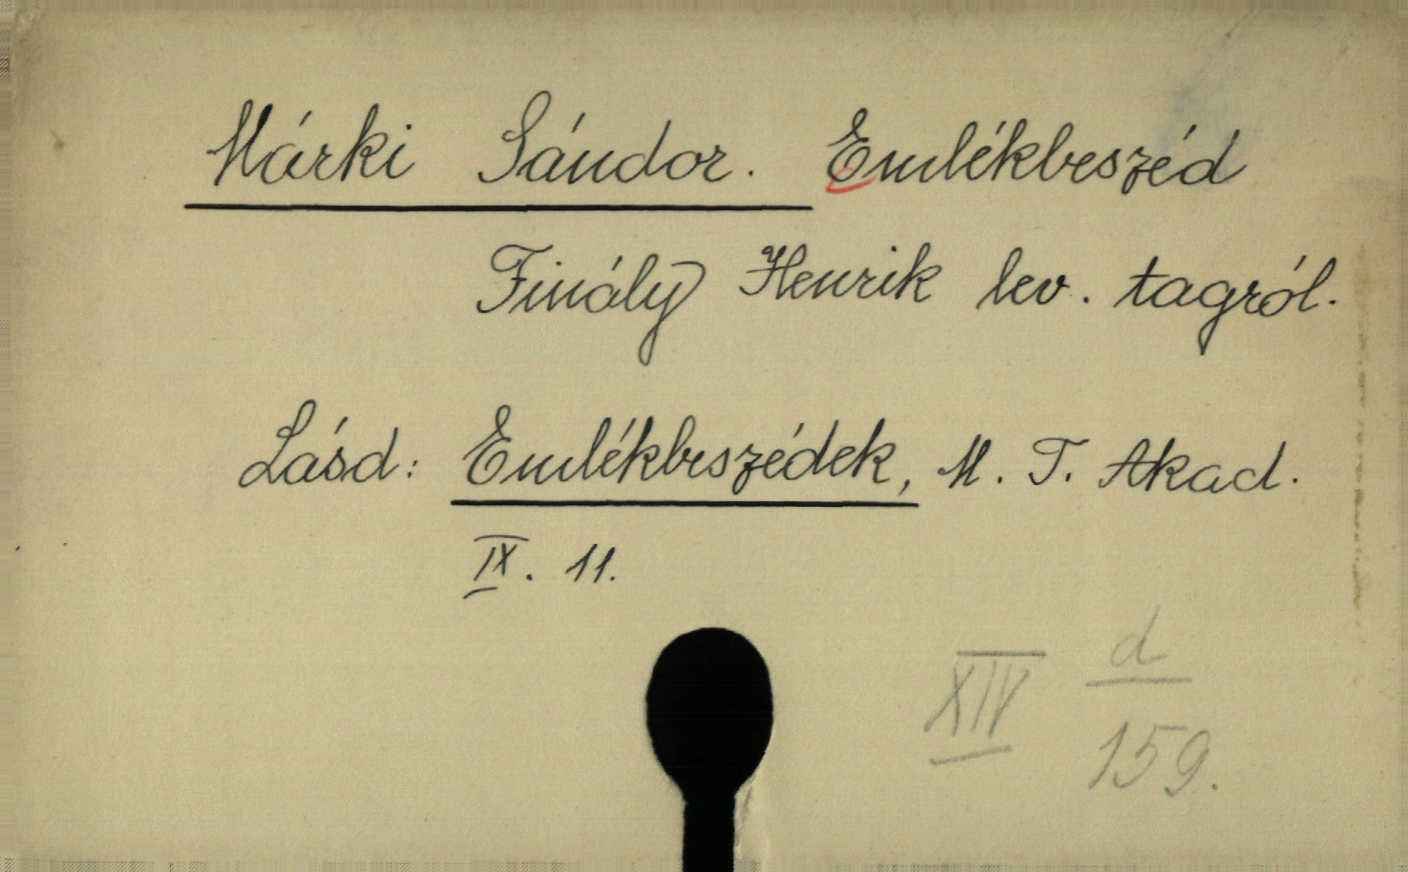 Márki Sándor. Emlékbeszéd
Finály Henrik lev. tagról.
Lásd: Emlékbeszédek, M. T. Akad.
IX. 11.
XIV d/159.